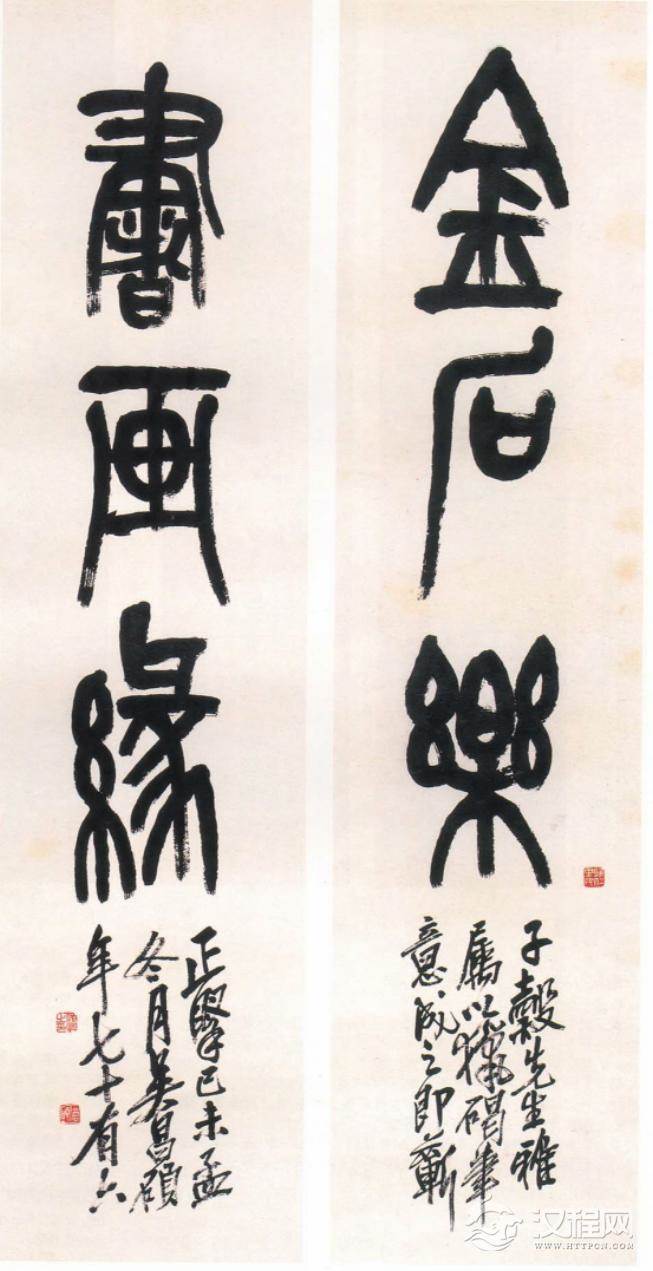 金石樂
書画緣
子縠先生雅
屬以獵碣筆
意成之即蘄
正擘己未孟
冬月吳昌碩
年七十有六
汉程网
WWW.HTTPCN.COM